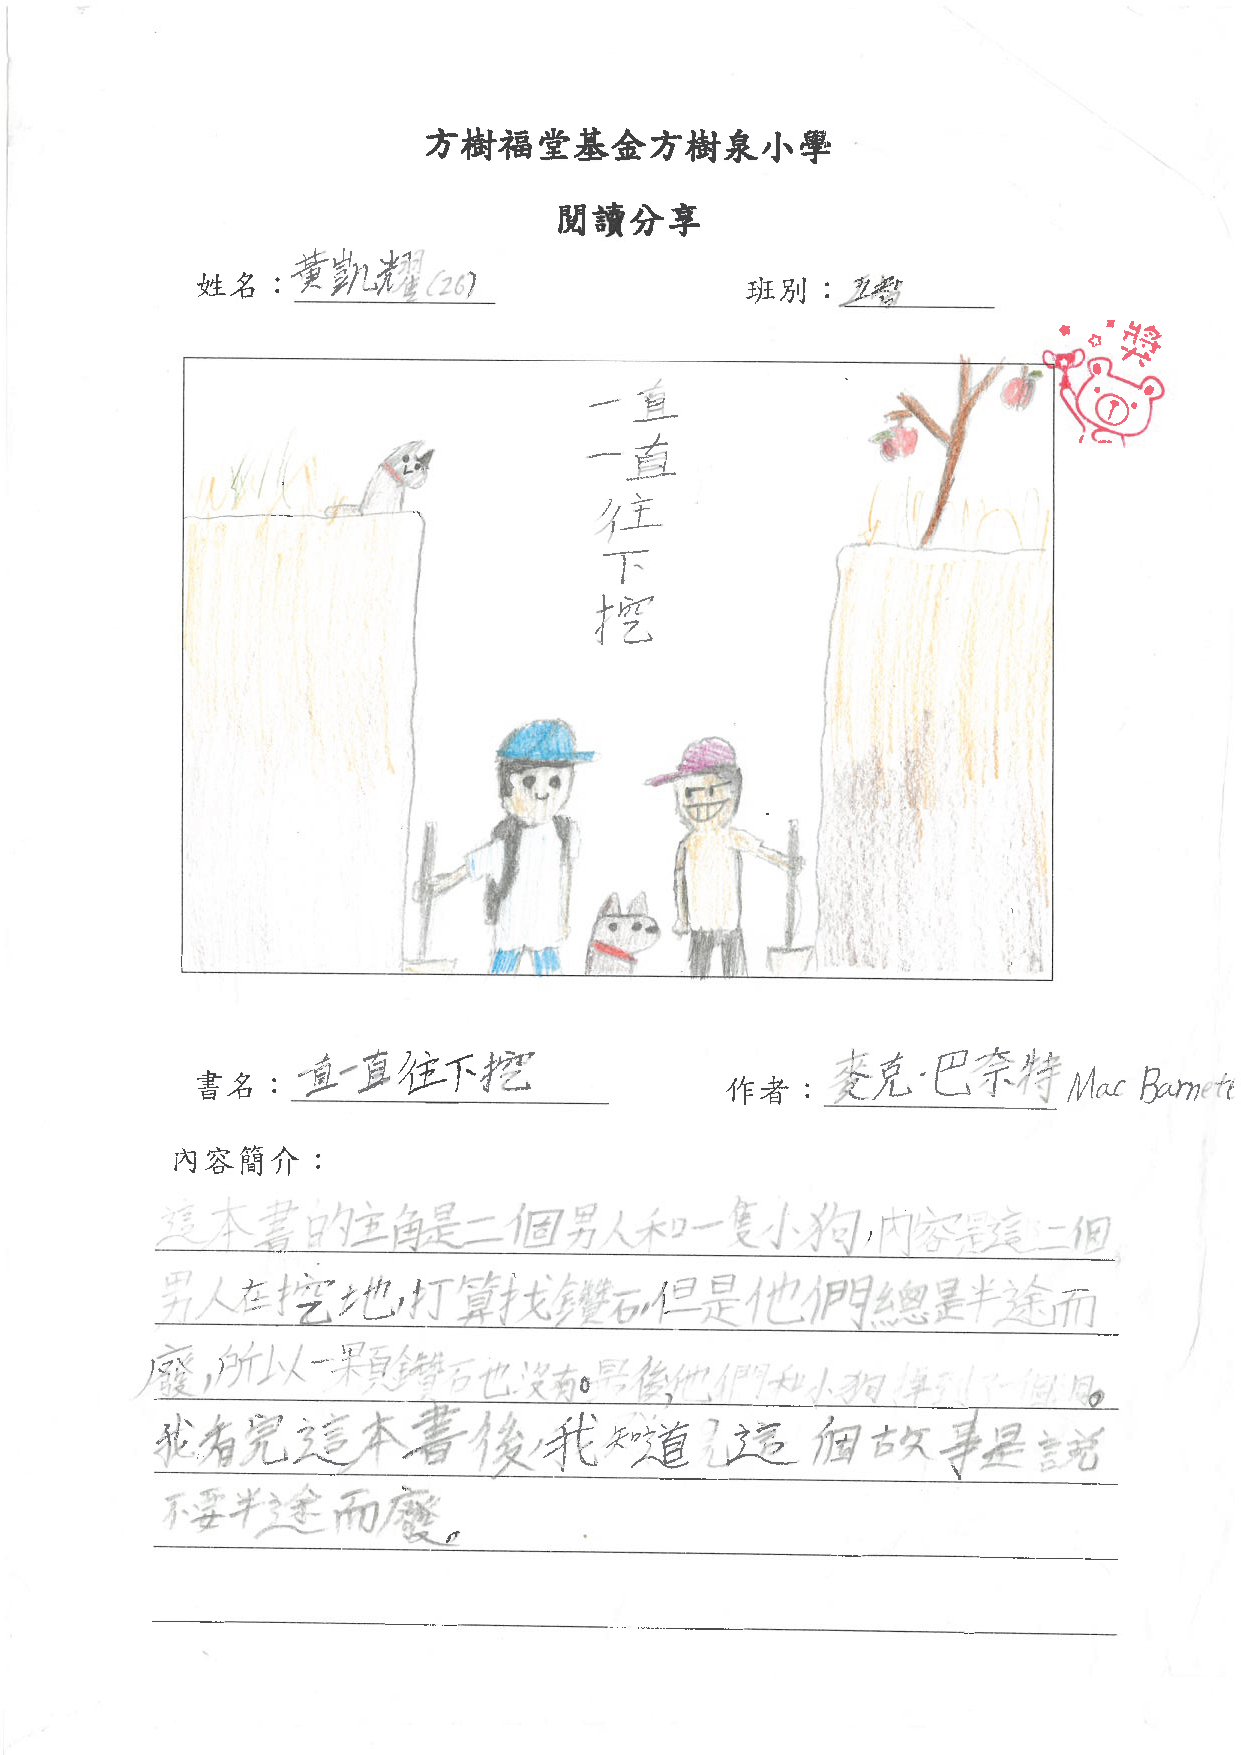 方樹福堂基金方樹泉小學
閱讀分享
姓名：黃凱耀(26)
班別：五智
獎
一直
一直
往
下
挖
書名：一直一直往下挖
作者：麥克·巴奈特 Mac Barnett
內容簡介：
這本書的主角是二個男人和一隻小狗,內容是這二個
男人在挖地,打算找鑽石,但是他們總是半途而
廢,所以一顆鑽石也沒有。最後,他們和小狗掉到了
我看完這本書後,我知道這個故事是說
不要半途而廢。